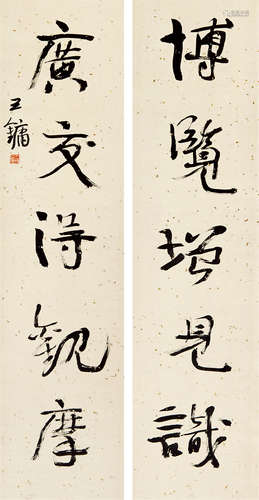 博覽增見識
廣交得觀摩
王鏞